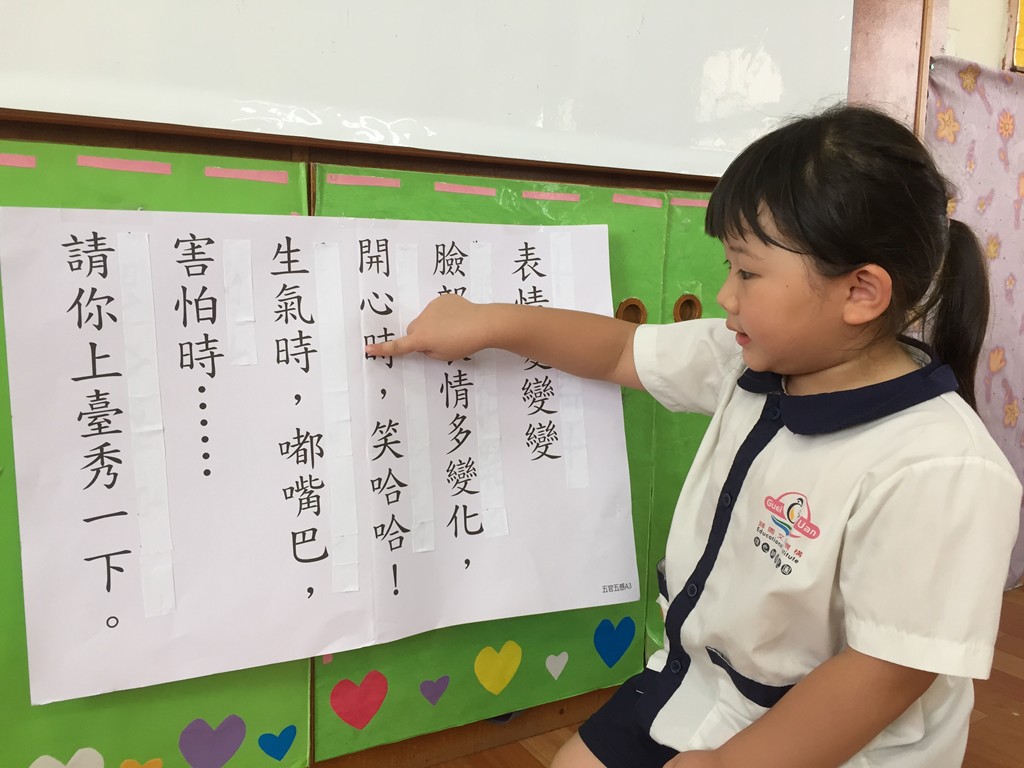 表情變變變
臉部表情多變化，
開心時，笑哈哈！
生氣時，嘟嘴巴，
害怕時……
請你上臺秀一下。
五官五感A3
Guei Uan